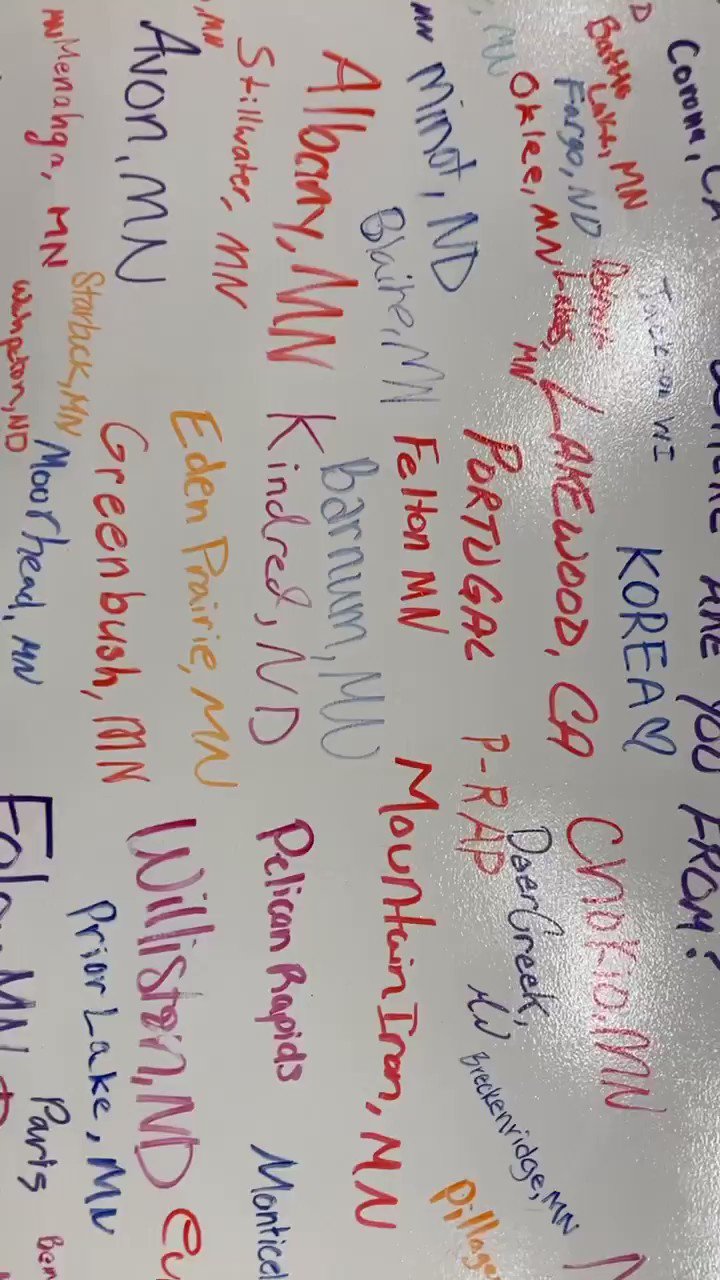 WHERE ARE YOU FROM?
Corona, CA
KOREA♡
WI
Chokio, MN
Battle Lake, MN
Fargo, ND
Detroit Lakes, MN
LAKEWOOD, CA
Oklee, MN
PORTUGAL
P-RAP
Deer Creek, MN
Breckenridge, MN
Minot, ND
Blaine, MN
Felton MN
Mountain Iron, MN
Albany, MN
Barnum, MN
Kindred, ND
Pelican Rapids
Stillwater, MN
Eden Prairie, MN
Williston, ND
Avon, MN
Greenbush, MN
Prior Lake, MN
Menahga, MN
Starbuck, MN
Moorhead, MN
Paris
MN
MN
MN
MN